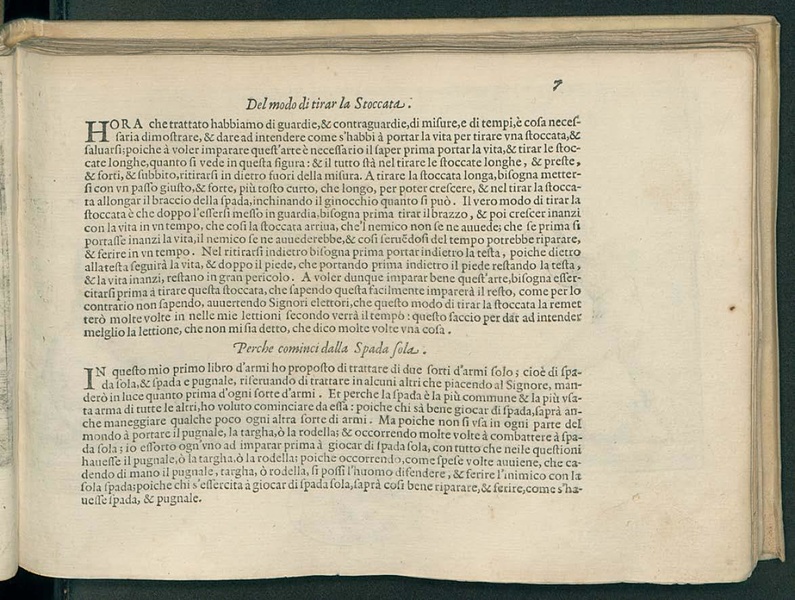 7
Del modo di tirar la Stoccata.
HORA che trattato habbiamo di guardie,& contraguardie,di misure,e di tempi,è cosa neces-
saria dimostrare, & dare ad intendere come s'habbi à portar la vita per tirare vna stoccata,&
saluarsi; poiche à voler imparare quest'arte è necessario il saper prima portar la vita,& tirar le stoc-
cate longhe,quanto si vede in questa figura: & il tutto stà nel tirare le stoccate longhe, & preste,
& forti, & subbito,ritirarsi in dietro fuori della misura. A tirare la stoccata longa,bisogna metter-
si con vn passo giusto,& forte, più tosto curto, che longo, per poter crescere, & nel tirar la stocca-
ta allongar il braccio della spada,inchinando il ginocchio quanto si può. Il vero modo di tirar la
stoccata è che doppo l'essersi messo in guardia,bisogna prima tirar il brazzo, & poi crescer inanzi
con la vita in vn tempo, che così la stoccata arriua, che'l nemico non se ne auuede; che se prima si
portasse inanzi la vita,il nemico se ne auuederebbe,& così seruēdosi del tempo potrebbe riparare,
& ferire in vn tempo. Nel ritirarsi indietro bisogna prima portar indietro la testa, poiche dietro
alla testa seguirà la vita, & doppo il piede, che portando prima indietro il piede restando la testa,
& la vita inanzi, restano in gran pericolo. A voler dunque imparar bene quest'arte,bisogna esser-
citarsi prima à tirare questa stoccata, che sapendo questa facilmente impararà il resto, come per lo
contrario non sapendo, auuertendo Signori elettori,che questo modo di tirar la stoccata la remet
terò molte volte in nelle mie lettioni secondo verrà il tempo: questo faccio per dar ad intender
melglio la lettione, che non mi sia detto, che dico molte volte vna cosa.
Perche cominci dalla Spada sola.
IN questo mio primo libro d'armi ho proposto di trattare di due sorti d'armi solo; cioè di spa-
da sola,& spada e pugnale, riseruando di trattare in alcuni altri che piacendo al Signore, man-
derò in luce quanto prima d'ogni sorte d'armi. Et perche la spada è la più commune & la più vsa-
ta arma di tutte le altri,ho voluto cominciare da essa: poiche chi sà bene giocar di spada,saprà an-
che maneggiare qualche poco ogni altra sorte di armi. Ma poiche non si vsa in ogni parte del
mondo à portare il pugnale, la targha,ò la rodella; & occorrendo molte volte à combattere à spa-
da sola; io essorto ogn'vno ad imparar prima à giocar di spada sola, con tutto che nelle questioni
hauesse il pugnale,ò la targa,ò la rodella; poiche occorrendo,come spese volte auuiene, che ca-
dendo di mano il pugnale, targha, ò rodella, si possi l'huomo difendere, & ferire l'inimico con la
sola spada;poiche chi s'essercita à giocar di spada sola,saprà così bene riparare,& ferire,come s'ha-
uesse spada, & pugnale.